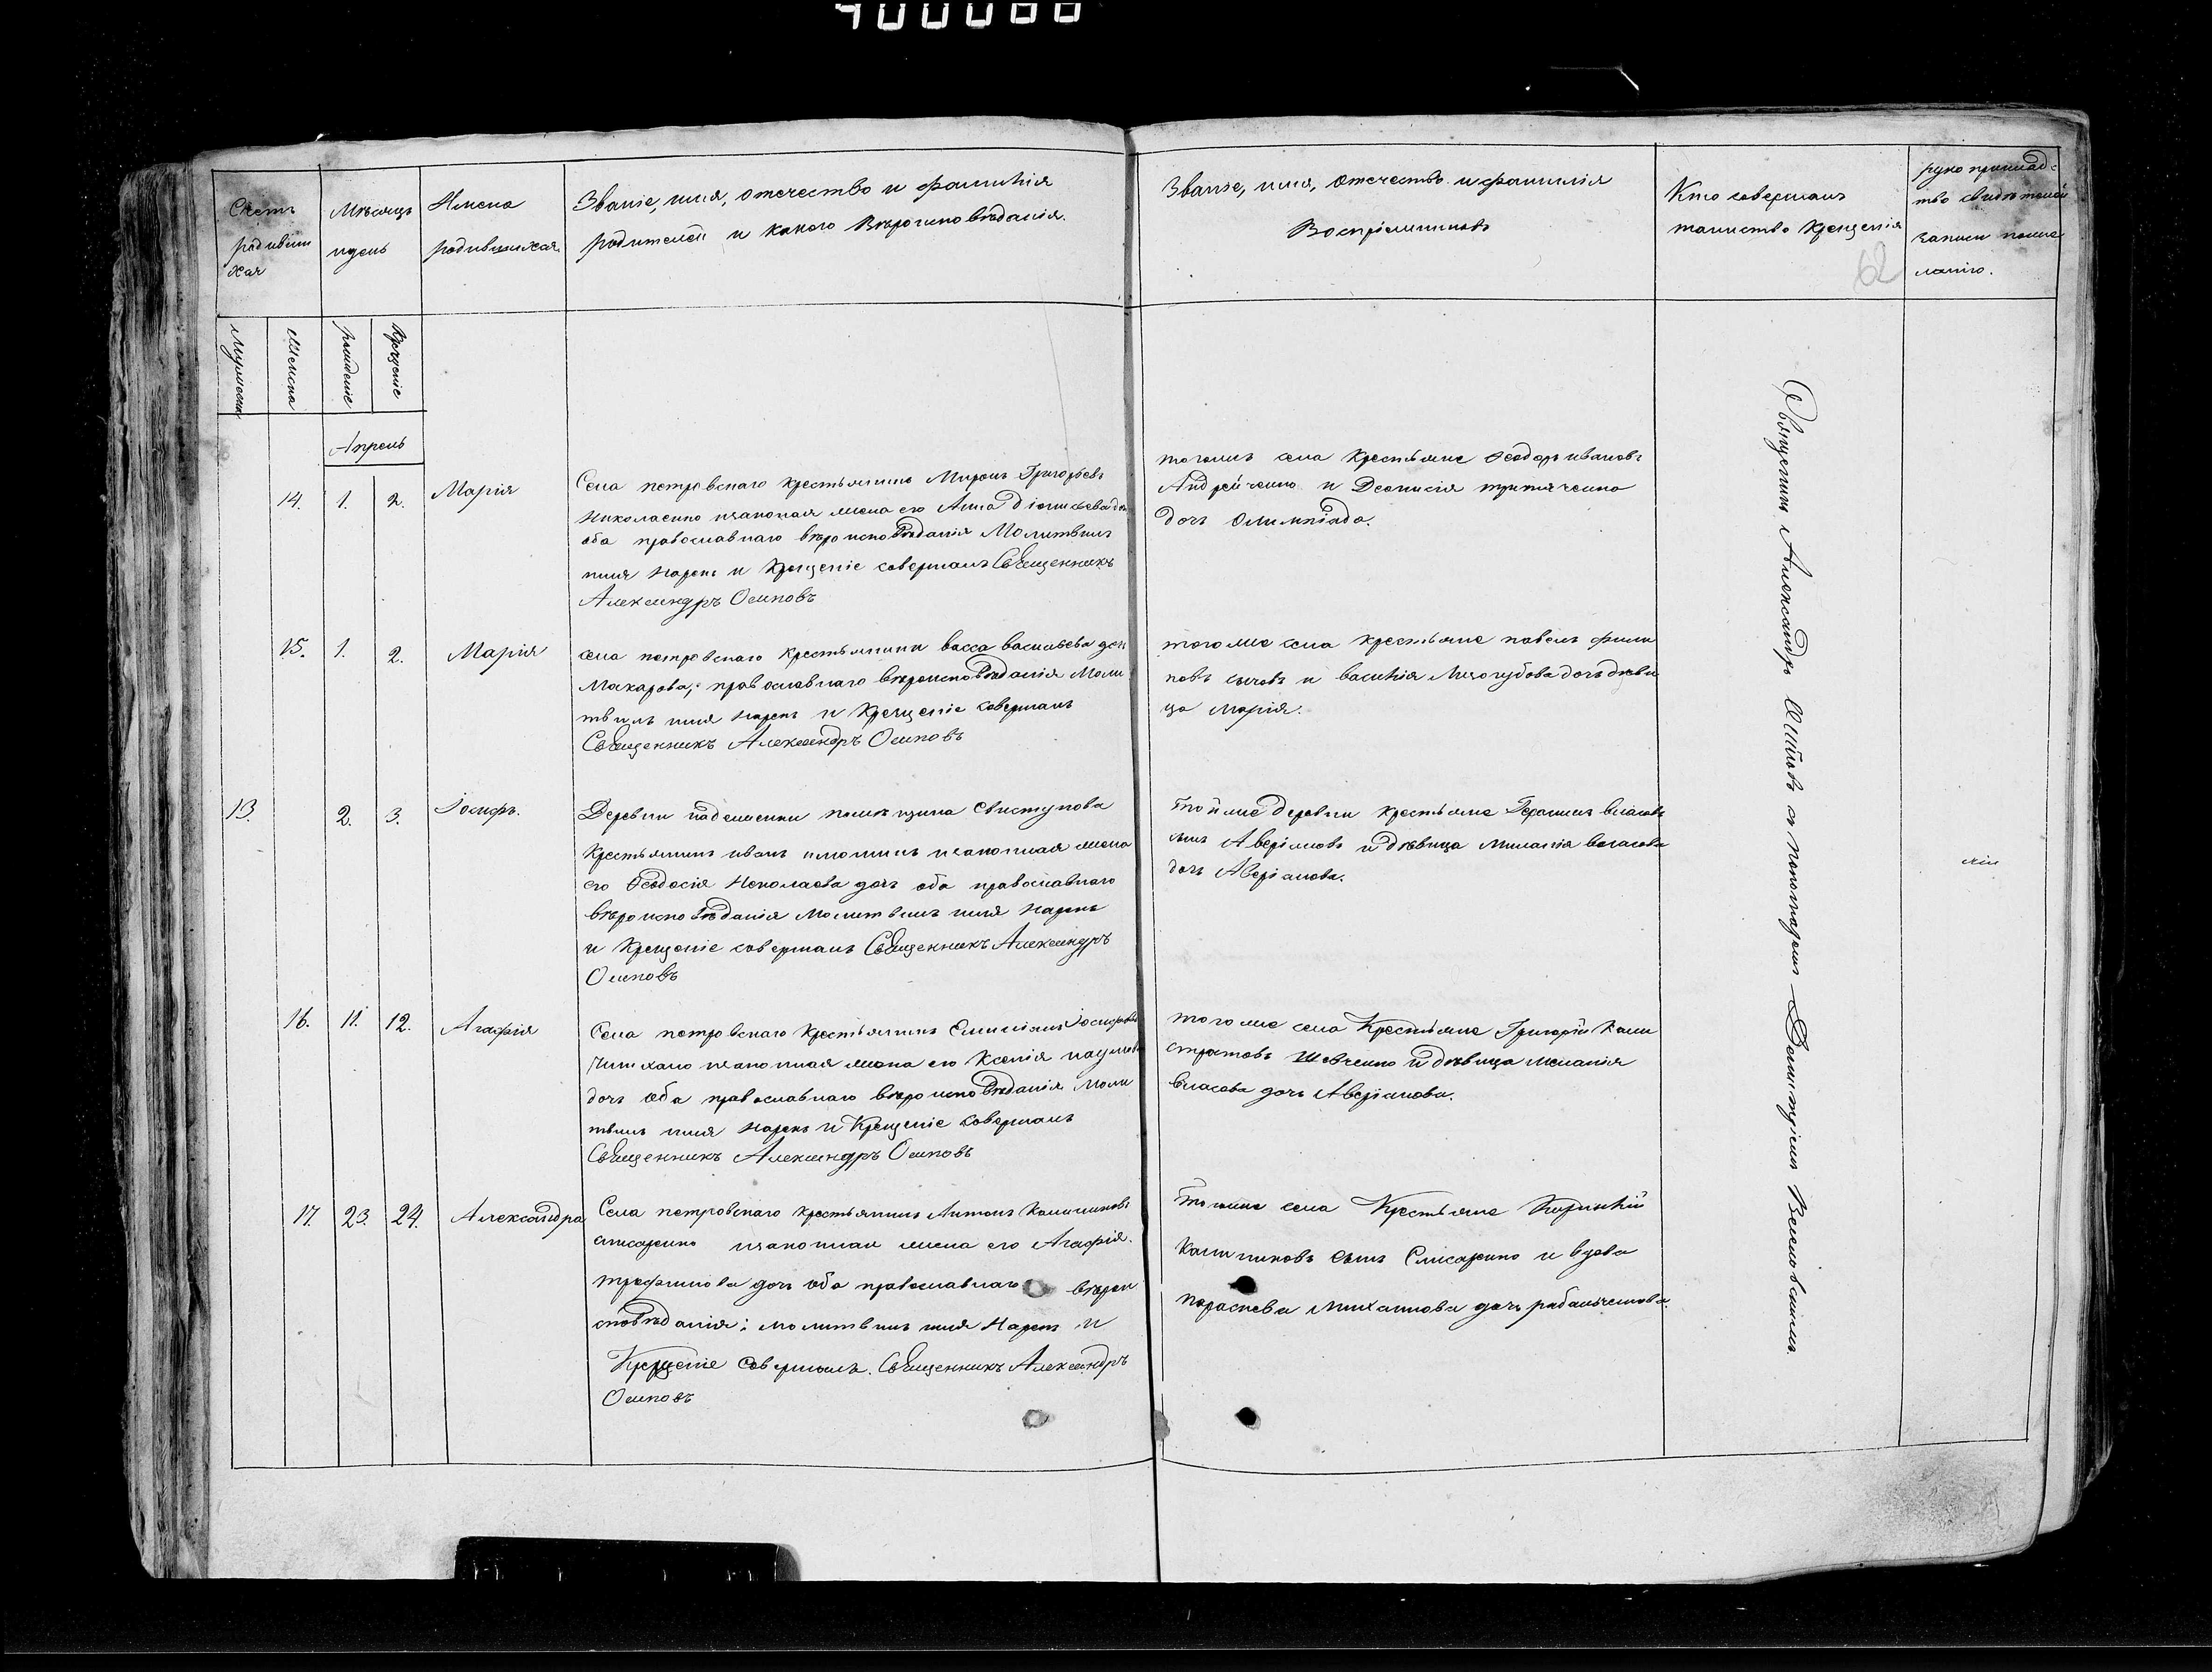 400066
Счетъ родившихся
Мѣсяцъ и день
Имена родившихся.
Званіе, имя, отечество и фамилія
родителей и какого вѣроисповѣданія.
Званіе, имя, отечество и фамилія
Воспріемниковъ
Кто совершалъ
таинство крещенія
62
рукоприклад-
тво свидѣтелей
записи по же
ланію.
Мужеска
Женска
рожденіе
крещеніе
Апрель
14. 1. 2. Марія
Села петровскаго крестьянинъ Миронъ Григорьевъ
Николаенко изаконная жена его Анна
оба православнаго вѣроисповѣданія Молитвилъ
имя нарекъ и крещеніе совершалъ Священникъ
Александръ Осиповъ
тогожъ села крестьяне Ѳеодоръ ивановъ
Андрейченко и Деонисія
дочь Олимпіада.
15. 1. 2. Марія
села петровскаго васса васильева доч
Макарова, православнаго вѣроисповѣданія Моли
твилъ имя нарекъ и крещеніе совершалъ
Священникъ Александръ Осиповъ
того же села крестьяне павелъ фили
повъ и василія дочь дѣви
ца Марія.
13. 2. 3. Іосифъ.
Деревни помѣщика Свистунова
Крестьянинъ иванъ изаконная жена
его Ѳеодосія Николаева дочь оба православнаго
вѣроисповѣданія Молитвилъ имя нарекъ
и крещеніе совершалъ Священникъ Александръ
Осиповъ
той же деревни крестьяне Герасимъ власовъ
сынъ Аверіяновъ и дѣвица Миланія власова
дочь Аверіанова.
16. 11. 12. Агафія
Села петровскаго крестьянинъ Емиліянъ Іосифовъ
изаконная жена его Ксенія наумова
дочь оба православнаго вѣроисповѣданія Моли
твилъ имя нарекъ и крещеніе совершалъ
Священникъ Александръ Осиповъ
того же села Крестьяне Григорій Кали
стратовъ Шевченко и дѣвица меланія
власова дочь Аверіанова.
17. 23. 24. Александра
Села петровскаго крестьянинъ Антонъ Калиниковъ
слисаренко изаконная жена его Агафія
трофимова дочь оба православнаго вѣрои
сповѣданія; молитвилъ имя Нарекъ и
Крещеніе совершалъ. Священникъ Александръ
Осиповъ
тогоже села Крестьяне
Калиниковъ сынъ Слисаренко и вдова
параскева Михаилова дочь
Священникъ Александръ Осиповъ съ пономаремъ Димитріемъ Веселовскимъ.